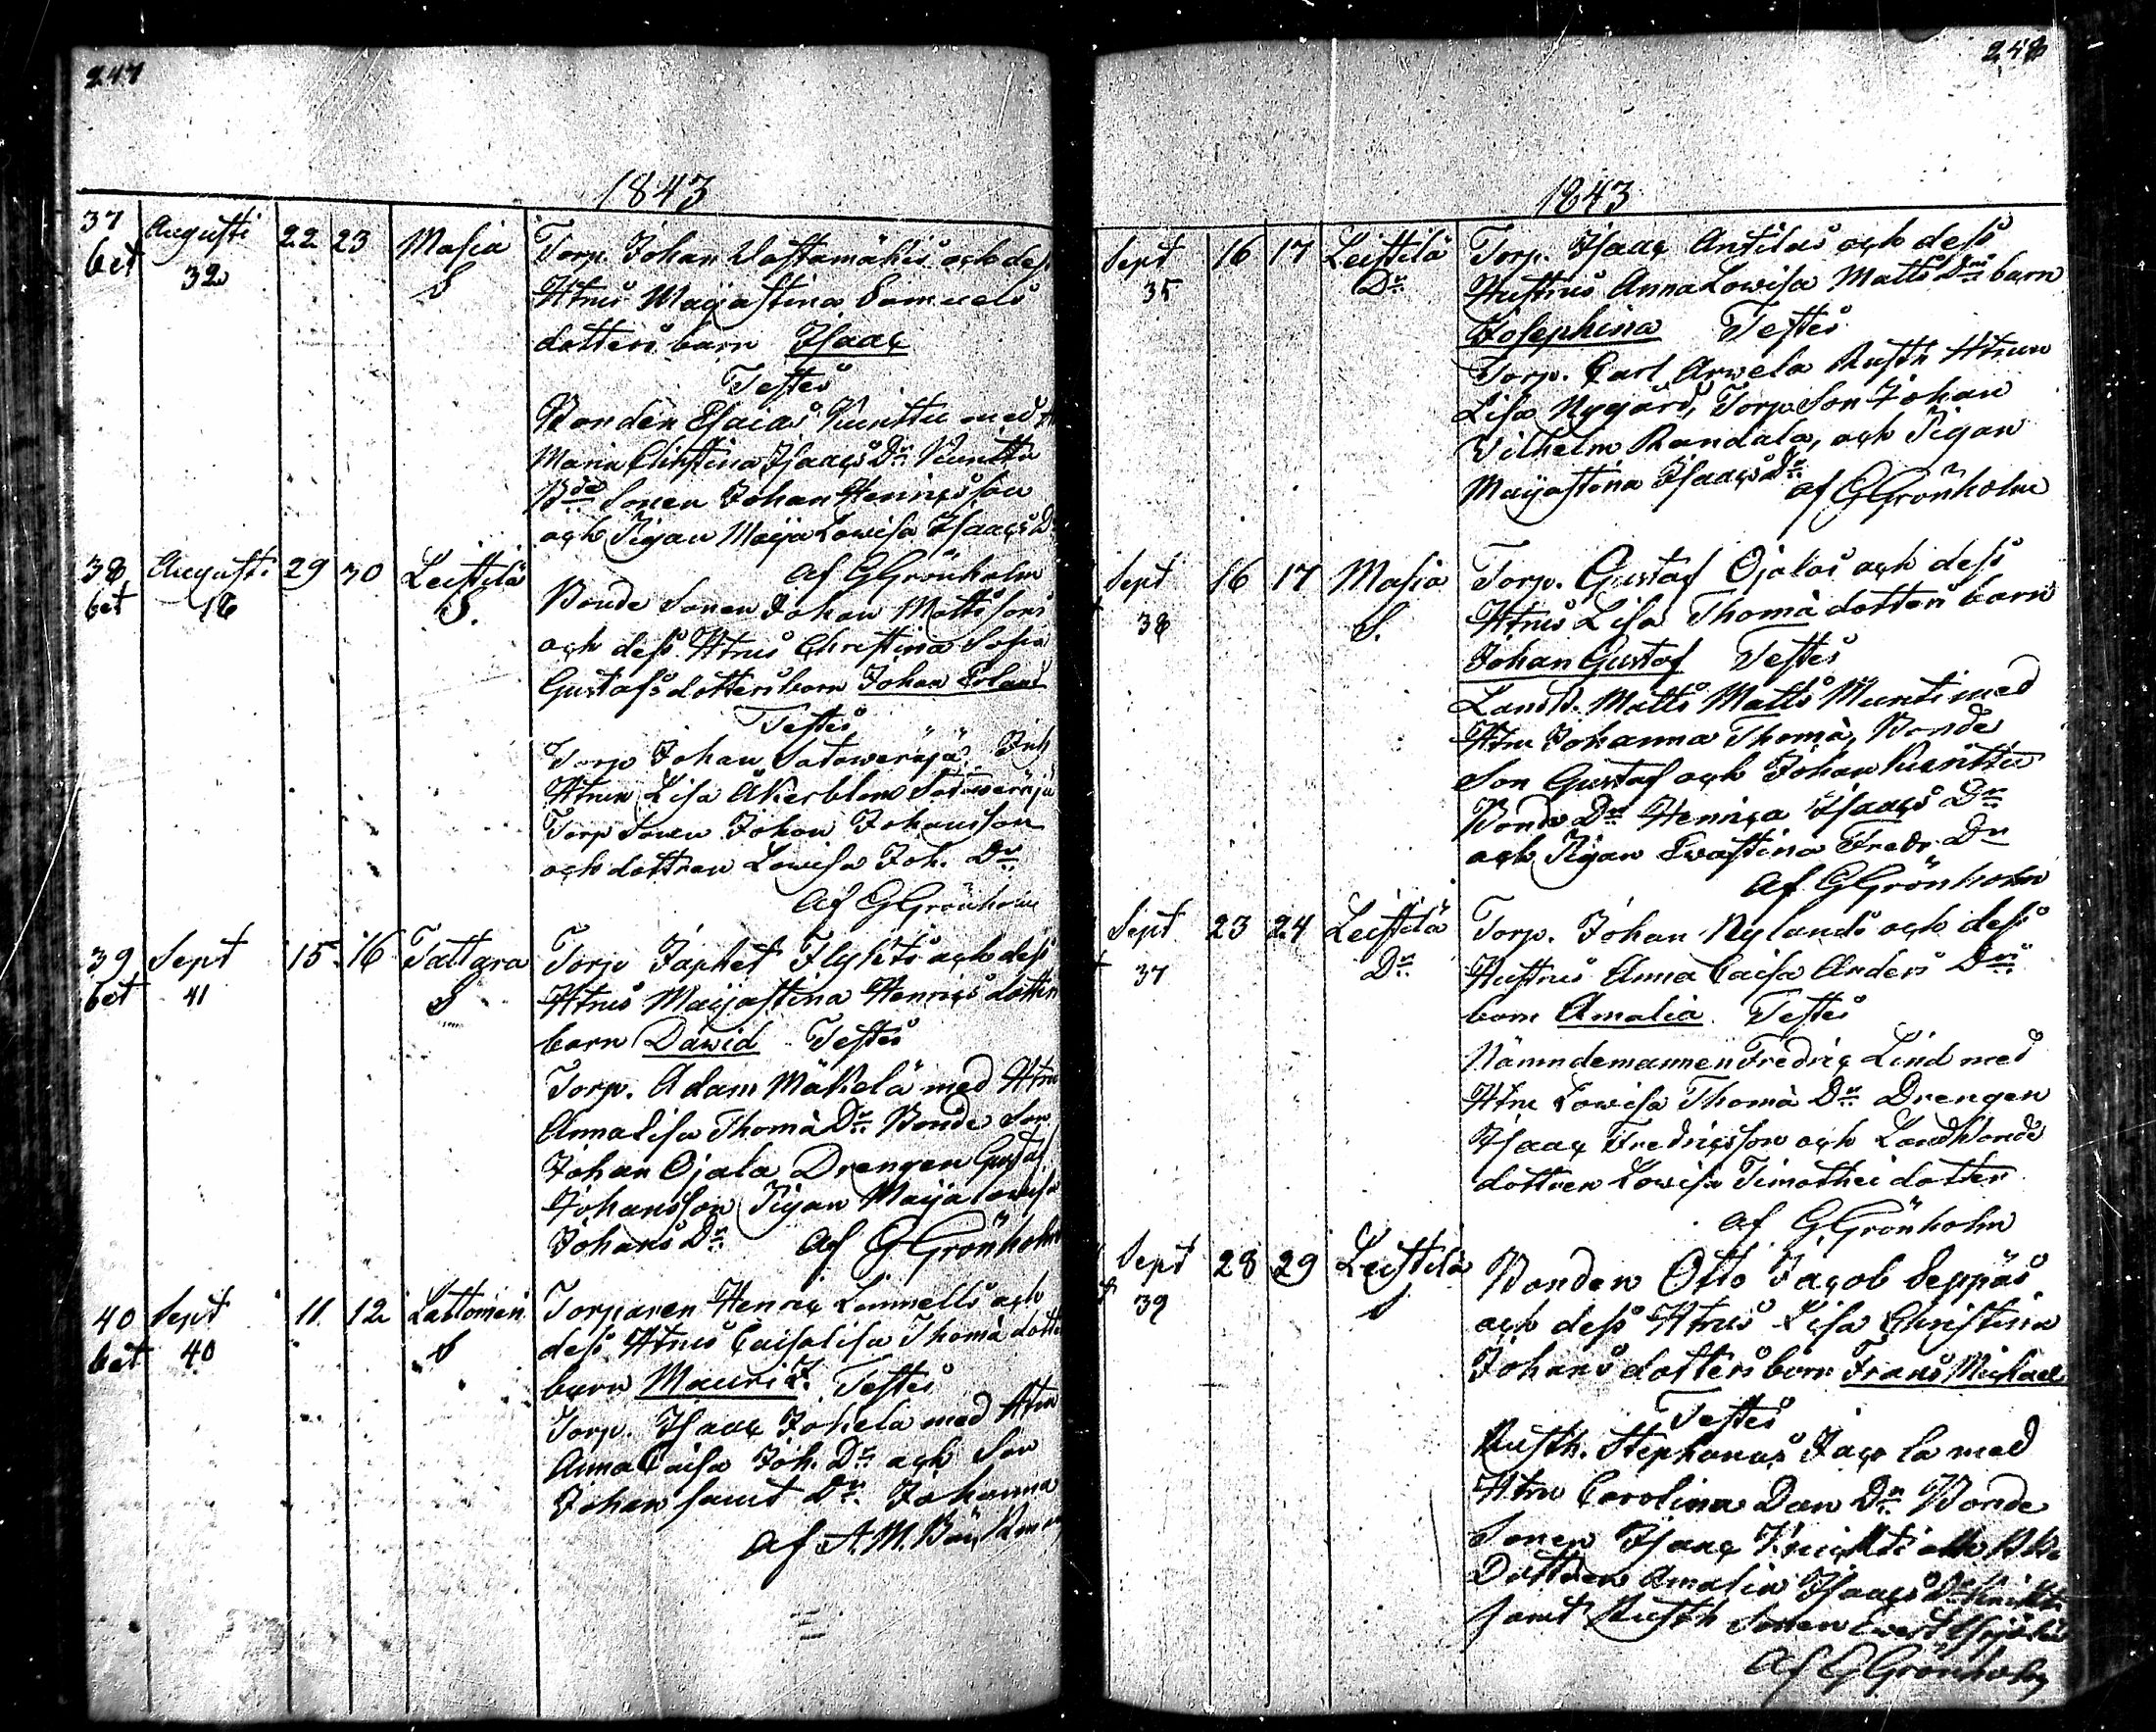 247
1843
37 Augusti 22 23 Masia Torp. Johan Wästamäkis och dess
bet 32 S Hstrus Majastina Samuels
dotters barn Isaac
Testes
Bonden Esaias Kuinttu med H
Maria Christina Isaacs Dr Kuinttu
Bde Sonen Johan Henricsson
och Pigan Maja Lowisa Isaacs Dr
af GGrönholm
38 Augusti 29 30 Leistilä Bonde Sonen Johan Mattssons
bet 18 S. och dess Hstrus Christina Sofia
Gustafs dotters barn Johan Erland
Testes
Torp Johan Satoweräjä
Hstrun Lisa Åkerblom Satoweräjä
Torp Sonen Johan Johansson
och dottren Lowisa Joh. Dr
Af GGrönholm
39 Sept 15 16 Tattara Torp Japhet Flykts och dess
bet 41 S Hstrus Majastina Henrics dotters
barn Dawid Testes
Torp. Adam Mäkelä med Hstru
Annalisa Thomà Dr Bonde Son
Johan Ojala Drengen Gustaf
Johansson Pigan Maija Lowisa
Johans Dr af GGrönholm
40 Sept 11 12 Lattomeri Torparen Henric Limnells och
bet 40 S dess Hstrus Caisalisa Thomà dotters
barn Mauritz. Testes
Torp. Isaac Jokela med Hstru
Anna Caisa Joh. Dr och Son
Johan samt Dr. Johanna
af A. M.
248
1843
Sept 16 17 Leistilä Torp. Isaac Antilas och dess
35 Dr Hustrus Anna Lowisa Matts Drs barn
Josephina Testes
Torp. Carl Arwela Rusth Hstrun
Lisa Nygård, Torp. Son Johan
Wilhelm Randala, och Pigan
Majastina Isaacs Dr af GGrönholm
Sept 16 17 Masia Torp. Gustaf Ojalas och dess
38 S. Hstrus Lisa Thomà dotters barn
Johan Gustaf Testes
Landb. Matts Matts Munti med
Hstru Johanna Thomà, Bonde
Son Gustaf och Johan Kuinttu
Bonde Dr Henrica Isaacs Dr
och Pigan Ewastina Fredr. Dr
af GGrönholm
Sept 23 24 Leistilä Torp. Johan Nylands och dess
37 Dr Hustrus Anna Caisa Anders Drs
barn Amalia Testes
Nämndemannen Fredric Lind med
Hstru Lowisa Thomà Dr Drengen
Isaac Fredricsson och Landbonde
dottren Lowisa Timothei dotter
af GGrönholm
Sept 28 29 Leistilä Bonden Otto Jacob Seppäs
39 S och dess Hstrus Lisa Christina
Johans dotters barn Frans Michael
Testes
Rusth. Stephanus Jacola med
Hstru Carolina Dan Dr Bonde
Sonen Isaac
Dottren Amalia Isaacs Dr
samt Rusth Sonen
Af GGrönholm